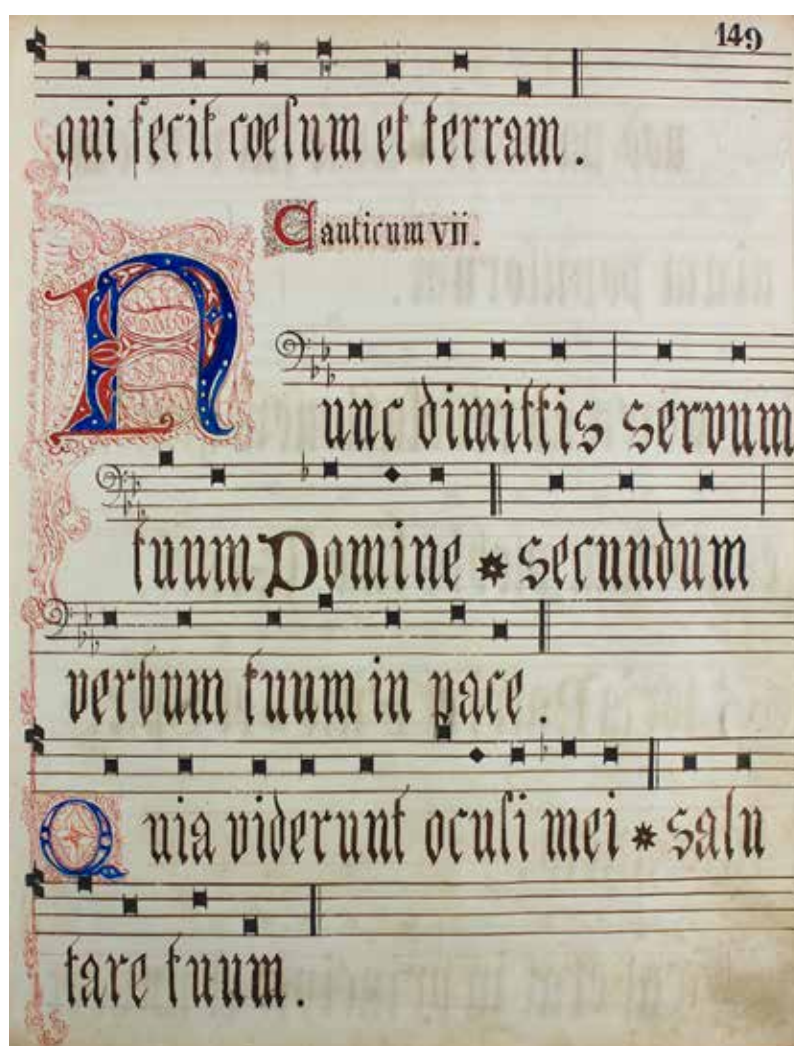 149
qui fecit cœlum et terram.
Canticum vii.
Nunc dimittis servum
tuum Domine * secundum
verbum tuum in pace.
Quia viderunt oculi mei * salu
tare tuum.